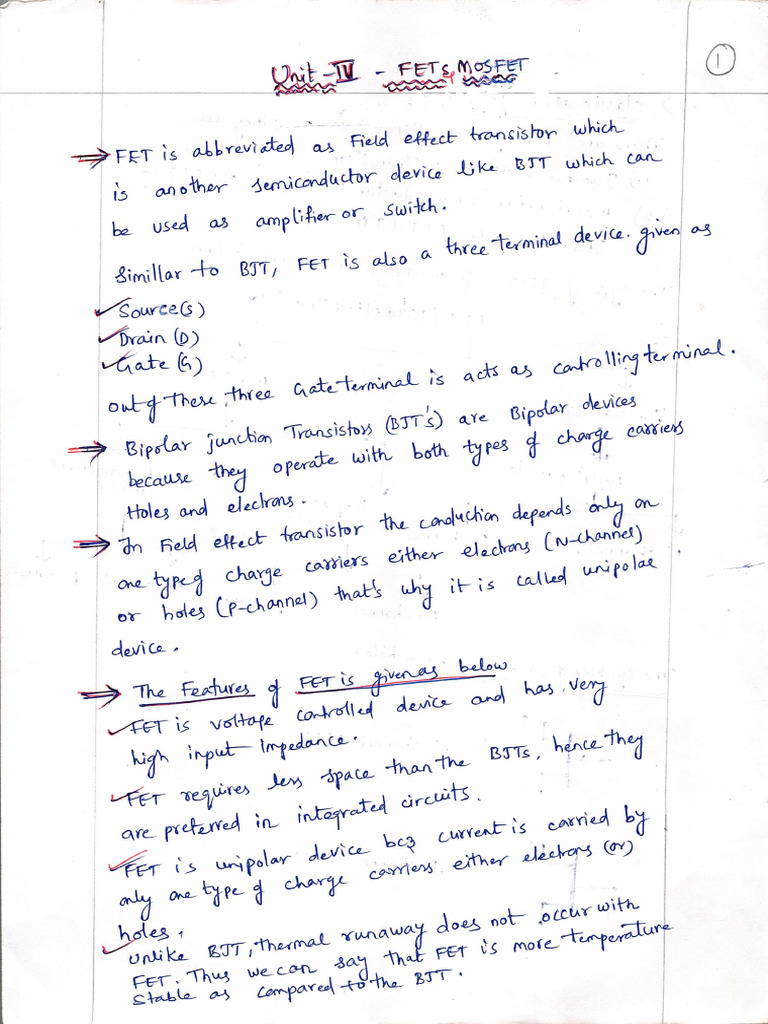 Unit-IV - FETs, MOSFET
1
FET is abbreviated as Field effect transistor which
is another semiconductor device like BJT which can
be used as amplifier or switch.
Simillar to BJT, FET is also a three terminal device. given as
Source(s)
Drain (D)
Gate (G)
out of These three Gate terminal is acts as controlling terminal.
Bipolar junction Transistors (BJT's) are Bipolar devices
because they operate with both types of charge carriers
Holes and electrons.
In Field effect transistor the conduction depends only on
one type of charge carriers either electrons (N-channel)
or holes (P-channel) that's why it is called unipolae
device.
The Features of FET is given as below
FET is voltage controlled device and has very
high input Impedance.
FET requires less space than the BJTs, hence they
are preferred in integrated circuits.
FET is unipolar device bcz current is carried by
only one type of charge carriers either electrons (or)
holes,
unlike BJT, thermal runaway does not occur with
FET. Thus we can say that FET is more temperature
Stable as compared to the BJT.